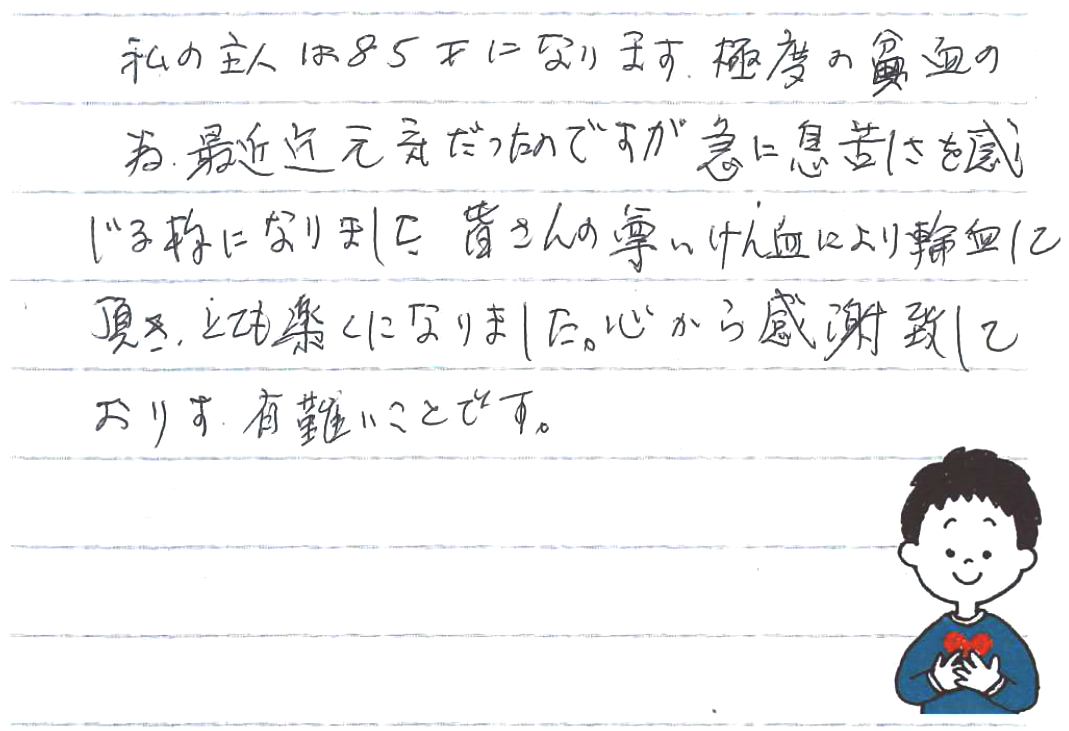 私の主人は85才になります.極度の貧血の
為.最近迄元気だったのですが急に息苦しさを感
じる様になりました 皆さんの尊いけん血により輪血して
頂き、とても楽くになりました。心から感謝致して
おります.有難いことです。